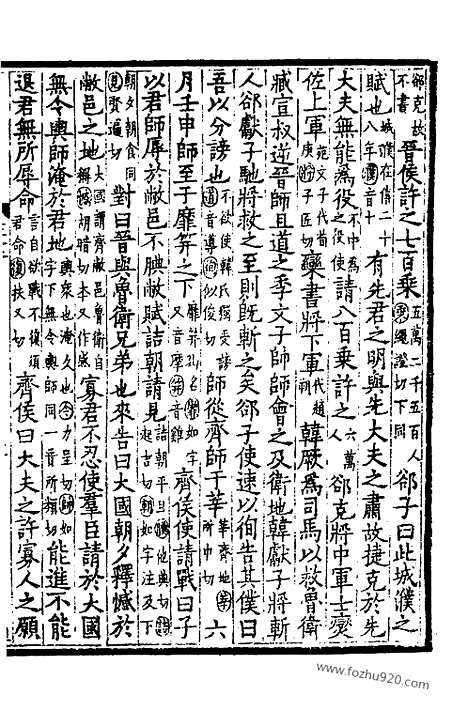 郤克故不書晉侯許之七百乘五萬二千五百人乘繩證切下同郤子曰此城濮之
賦也城濮在僖二十八年有先君之明與先大夫之肅故捷克於先
大夫無能爲役不中爲之役使請八百乘許之六萬人郤克將中軍士燮
佐上軍范文子代荀庚欒書將下軍代趙朔韓厥爲司馬以救魯衛
臧宣叔逆晉師且道之季文子帥師會之及衛地韓獻子將斬
人郤獻子馳將救之至則既斬之矣郤子使速以徇告其僕曰
吾以分謗也不欲使韓氏獨受謗師從齊師于莘莘齊地六
月壬申師至于靡笄之下靡笄山名齊侯使請戰曰子
以君師辱於敝邑不腆敝賦詰朝請見詰朝平旦對曰晉與魯衛兄弟也來告曰大國朝夕釋憾於
敝邑之地大國謂齊敝邑魯衛自謂寡君不忍使羣臣請於大國
無令輿師淹於君地輿衆也淹久也能進不能
退君無所辱命言自欲戰不復須君命齊侯曰大夫之許寡人之願
www.fozhu920.com